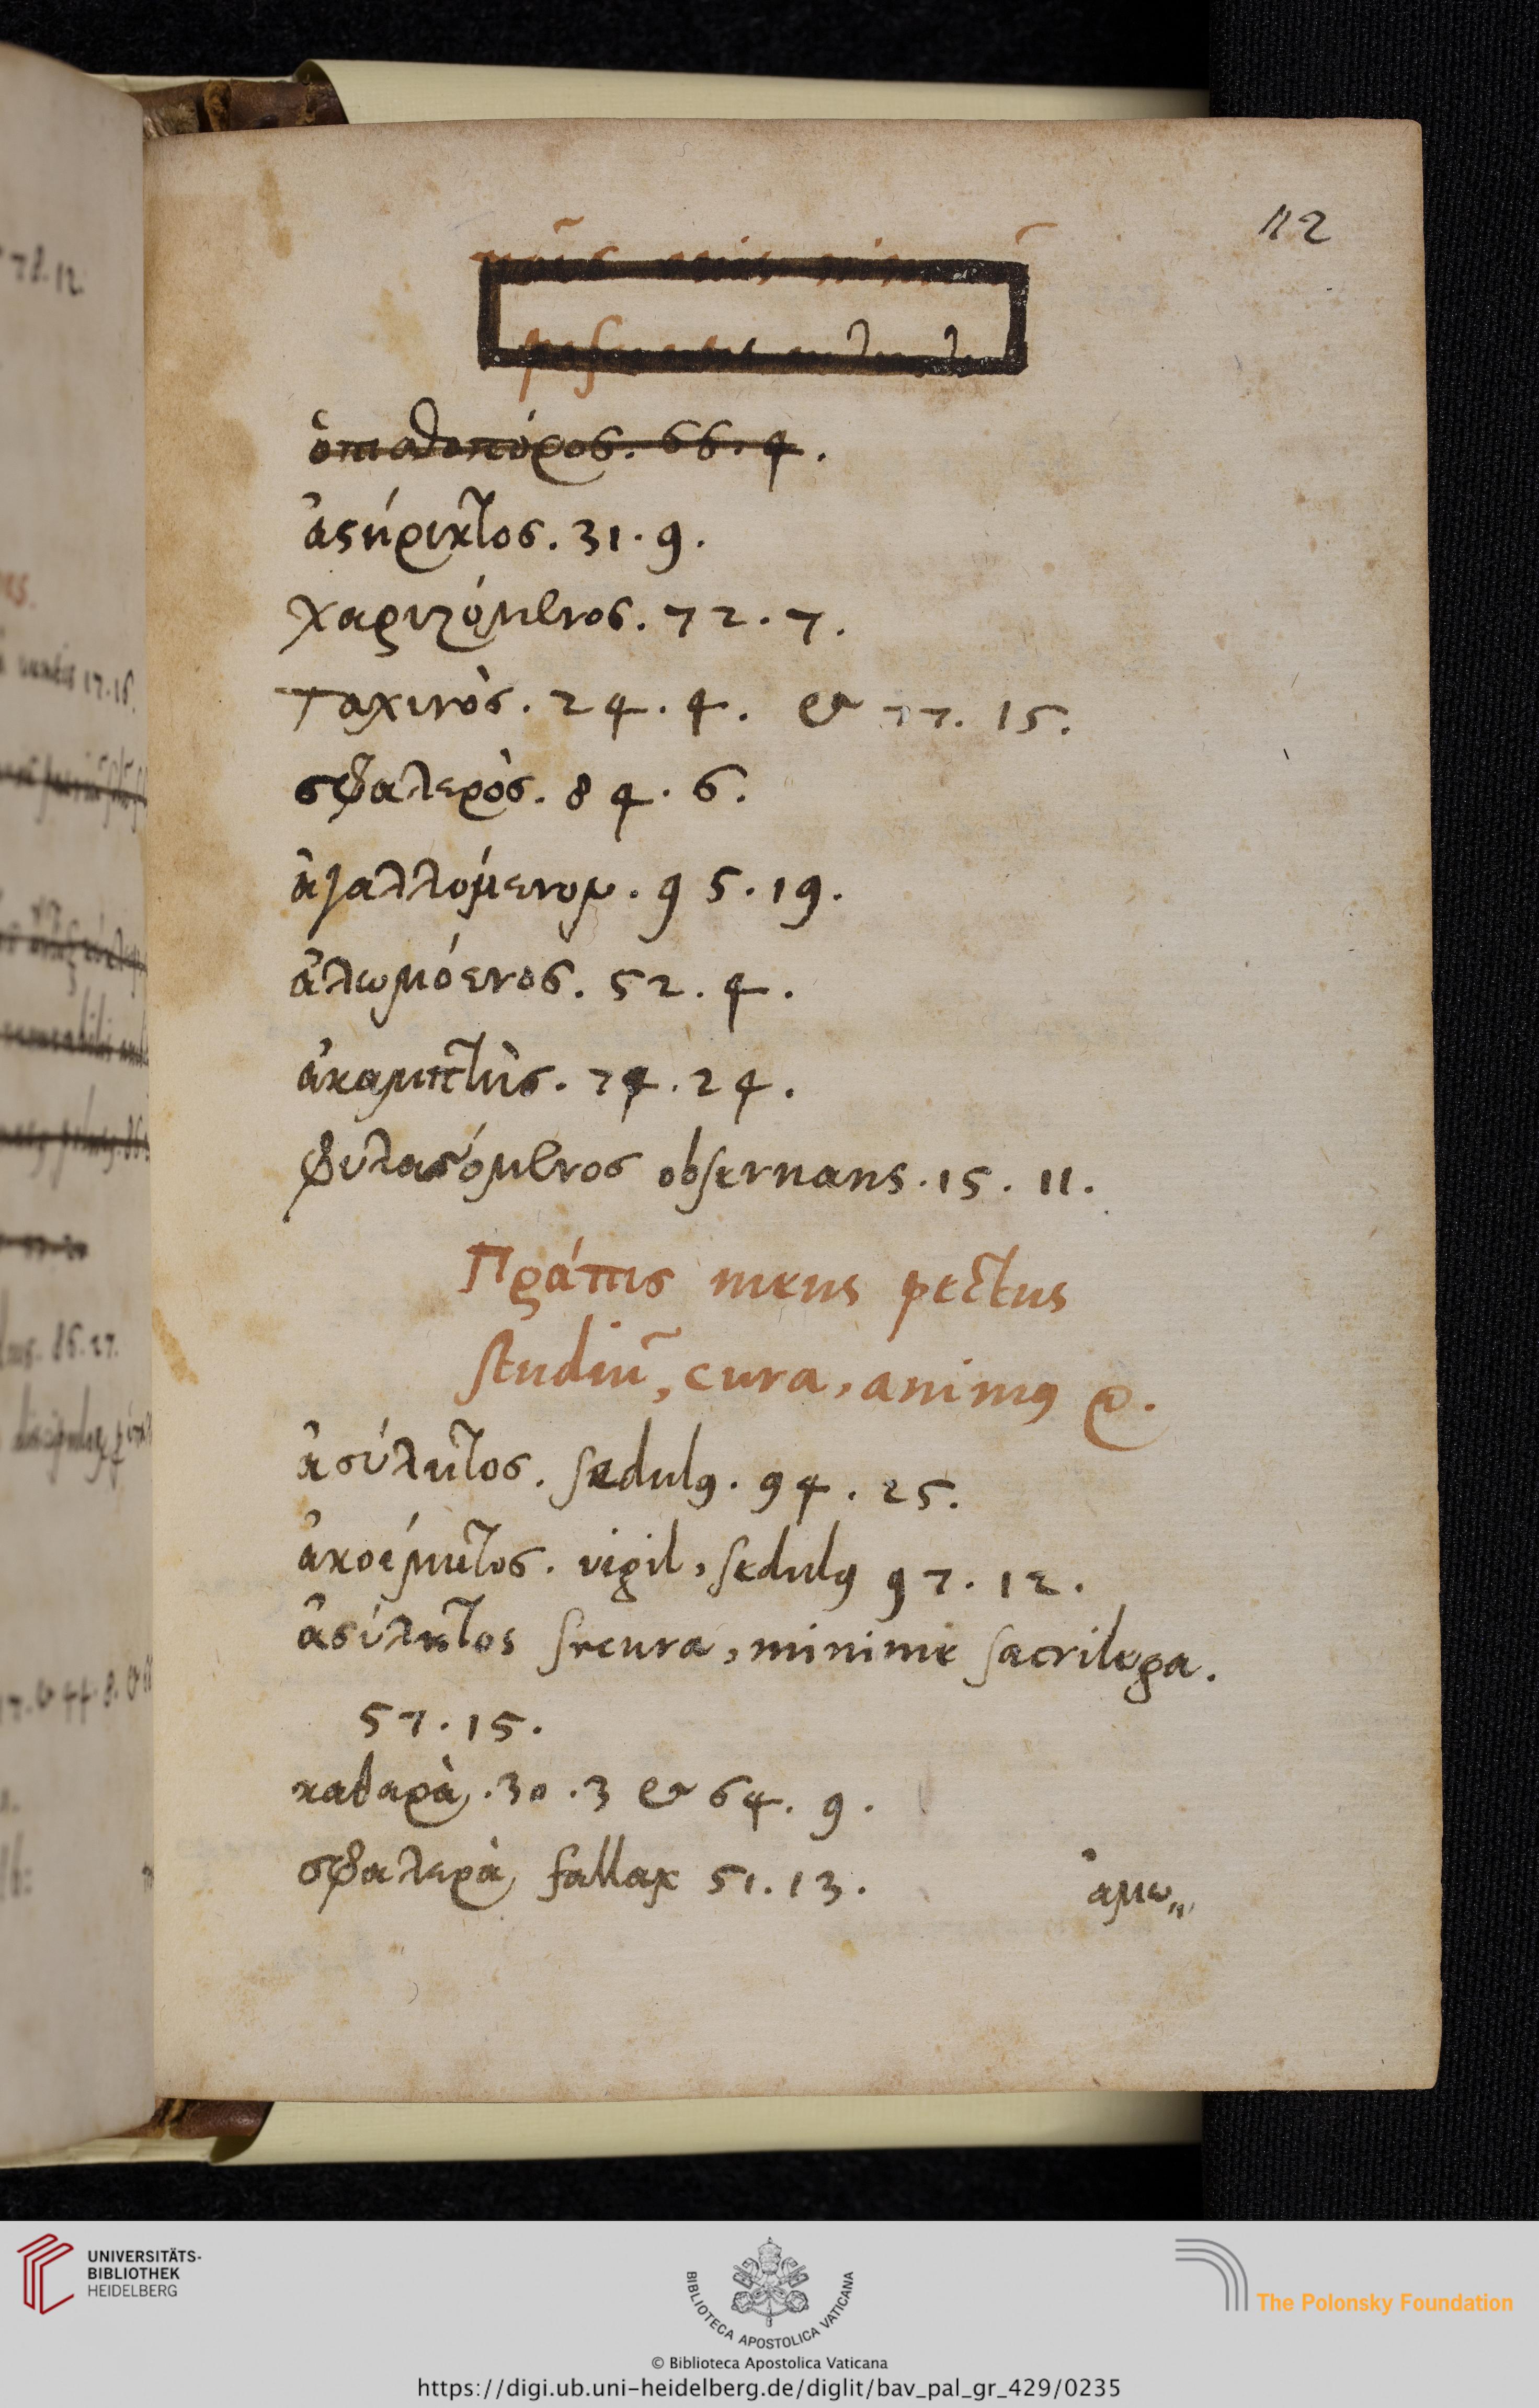 112
ὀπισθοπόρος. 66. 4.
ἀστήρικτος. 31. 9.
χαριζόμενος. 72. 7.
ταχινὸς. 24. 4. & 77. 15.
σφαλερὸς. 84. 6.
ἀγαλλόμενον. 95. 19.
ἀλωμόενος. 52. 4.
ἀκαμπτὴς. 74. 24.
φυλασσόμενος obseruans. 15. 11.
Πράπις mens pectus
studiū, cura, animꝰ
ἀσύλητος. sedulꝰ. 94. 25.
ἀκοίμητος. vigil, sedulꝰ 97. 12.
ἀσύλητος secura, minime sacrilega.
57. 15.
καθαρὰ. 30. 3 & 64. 9.
σφαλερὰ fallax 51. 13.
ἀμω„
UNIVERSITÄTS-
BIBLIOTHEK
HEIDELBERG
BIBLIOTECA APOSTOLICA VATICANA
The Polonsky Foundation
© Biblioteca Apostolica Vaticana
https://digi.ub.uni-heidelberg.de/diglit/bav_pal_gr_429/0235